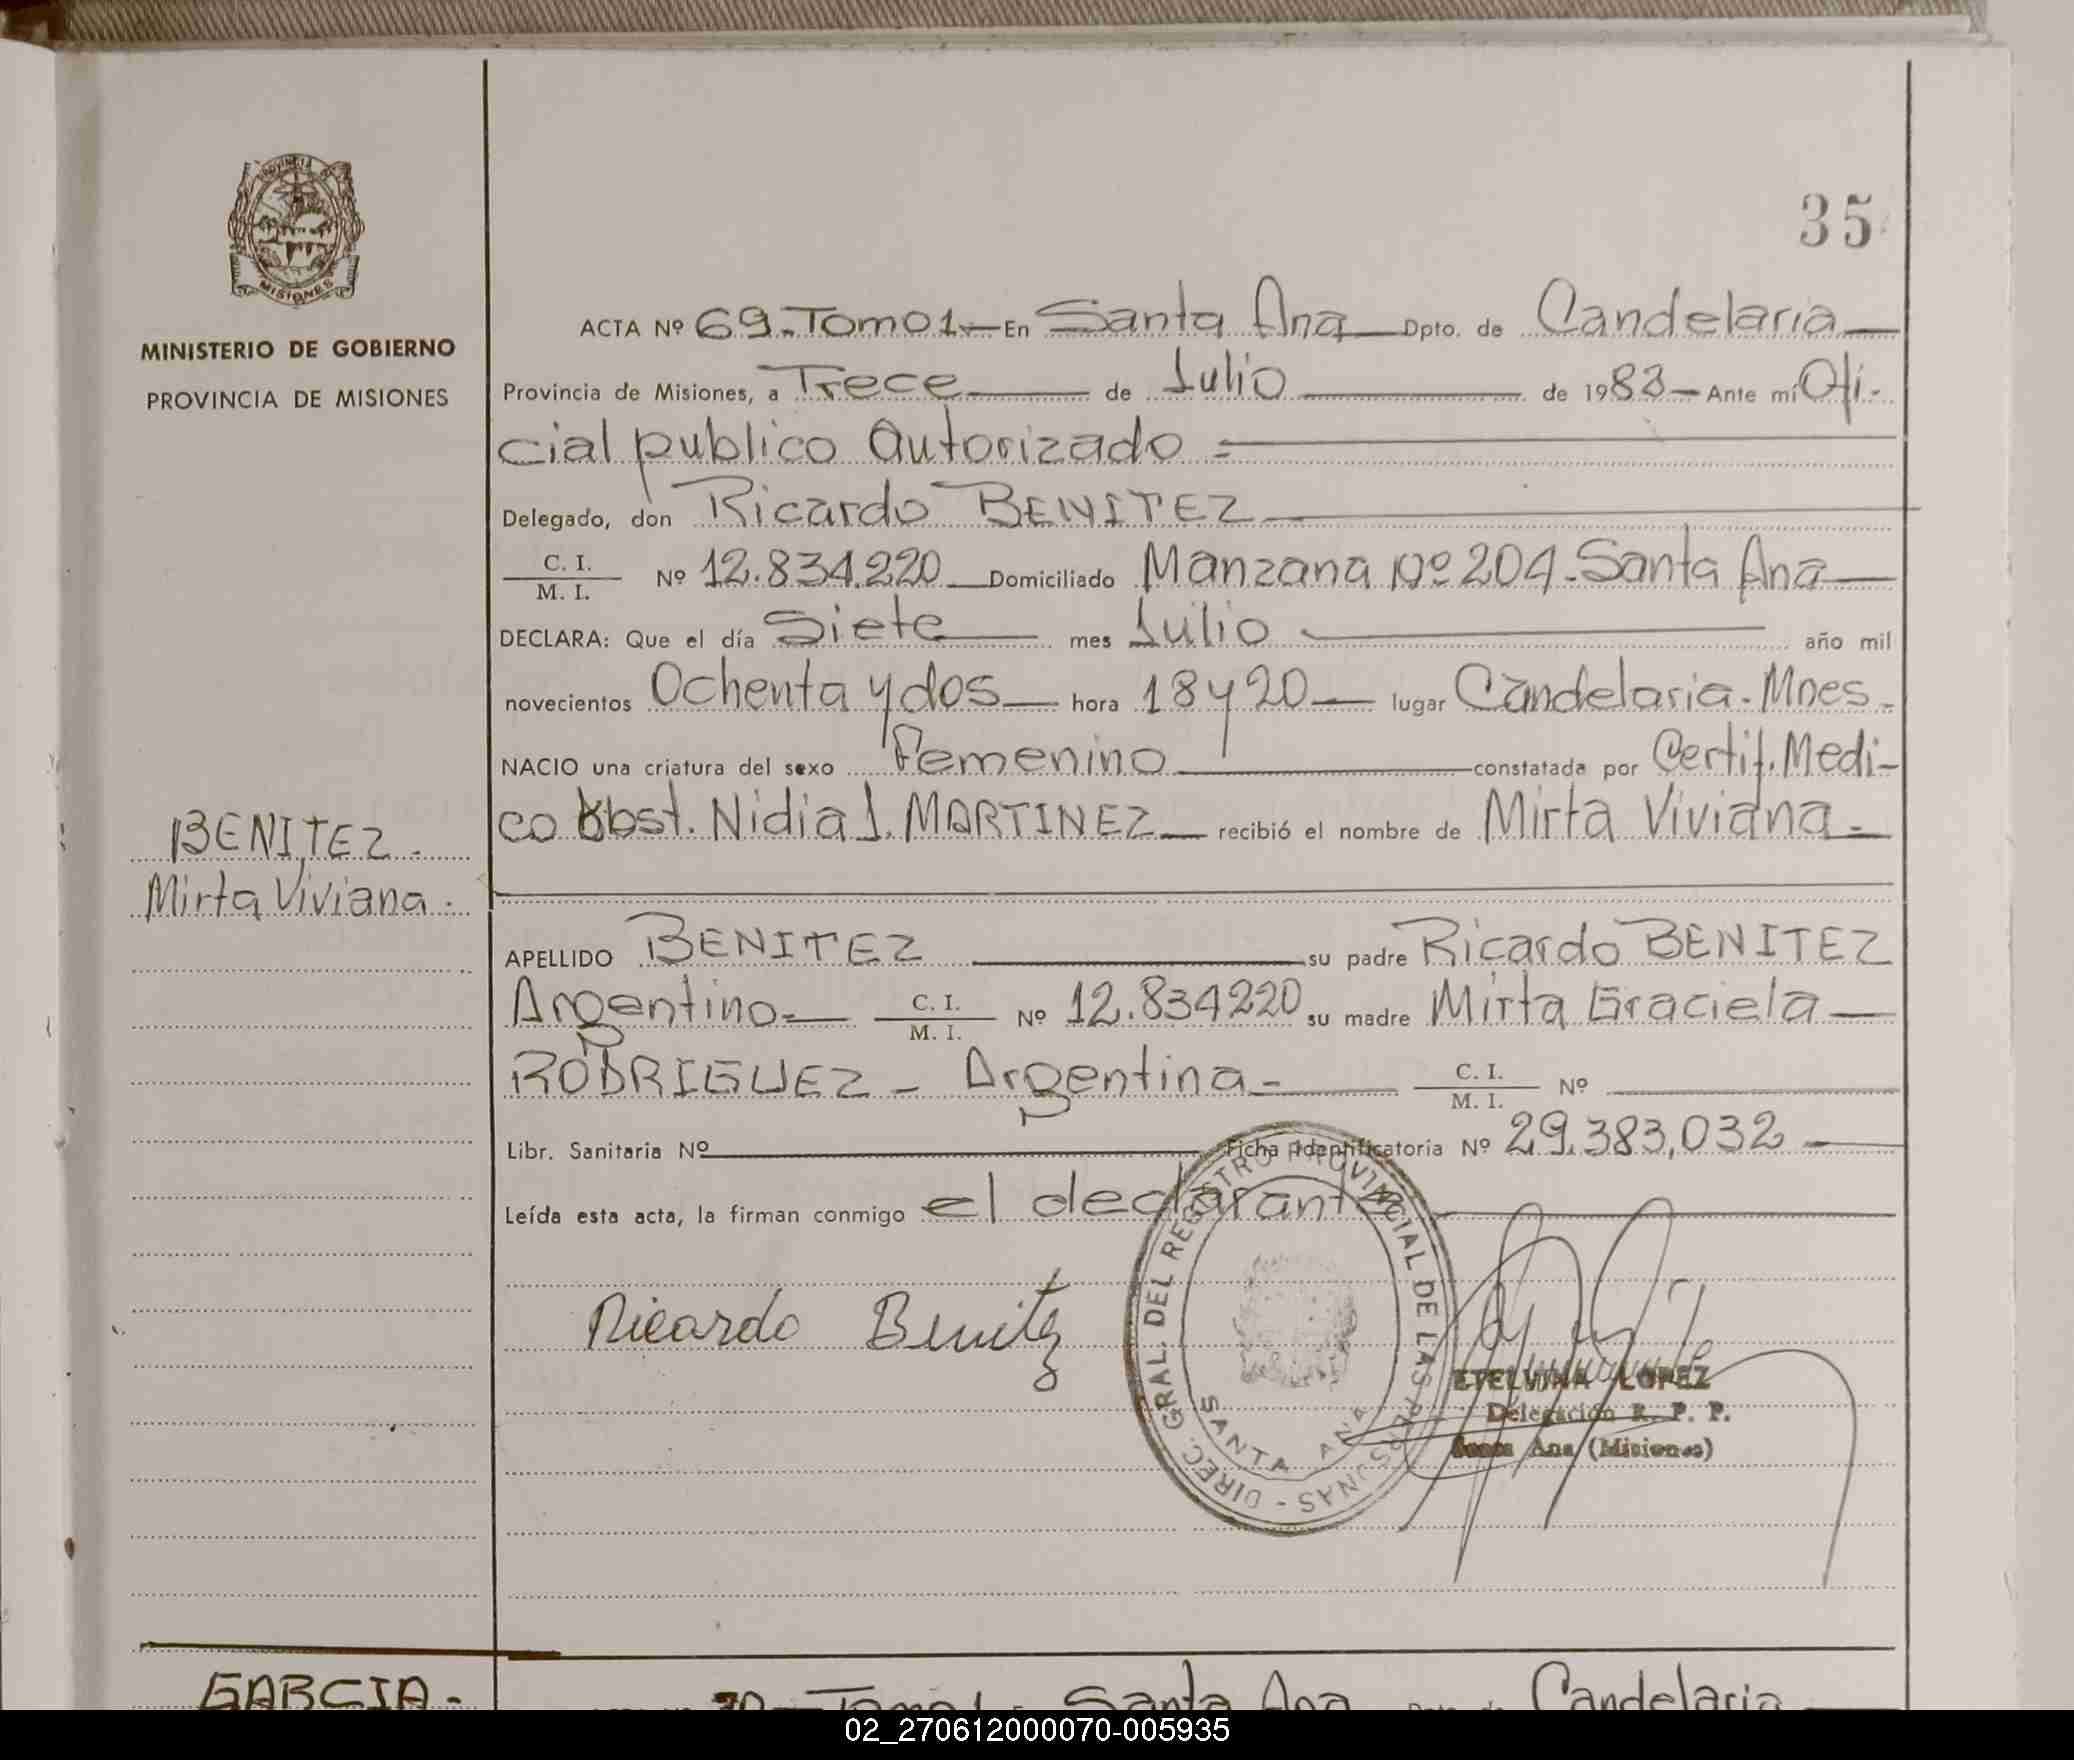 35
PROVINCIA
MISIONES
MINISTERIO DE GOBIERNO
PROVINCIA DE MISIONES
ACTA Nº 69.-Tomo 1.- En Santa Ana Dpto. de Candelaria
Provincia de Misiones, a Trece de Julio de 1983 - Ante mí Ofi-
cial publico Autorizado =
Delegado, don Ricardo BENITEZ
C. I.
M. I. Nº 12.834.220 Domiciliado Manzana Nº 204-Santa Ana
DECLARA: Que el día Siete mes Julio año mil
novecientos Ochenta y dos hora 18 y 20 lugar Candelaria. Mnes.
NACIO una criatura del sexo Femenino constatada por Certif. Medi-
co Obst. Nidia J. MARTINEZ recibió el nombre de Mirta Viviana.-
BENITEZ.
Mirta Viviana.
APELLIDO BENITEZ su padre Ricardo BENITEZ
Argentino C. I.
M. I. Nº 12.834220 su madre Mirta Graciela
RODRIGUEZ - Argentina- C. I.
M. I. Nº
Libr. Sanitaria Nº Ficha Identificatoria Nº 29.383,032
Leída esta acta, la firman conmigo el declarante
Ricardo Benitez
DIREC. GRAL. DEL REGISTRO PROVINCIAL DE LAS PERSONAS -
SANTA ANA
ETELVINA LOPEZ
Delegación R. P. P.
Santa Ana (Misiones)
GARCIA.
70 - Tomo 1 Santa Ana Dpto. de Candelaria
02_270612000070-005935